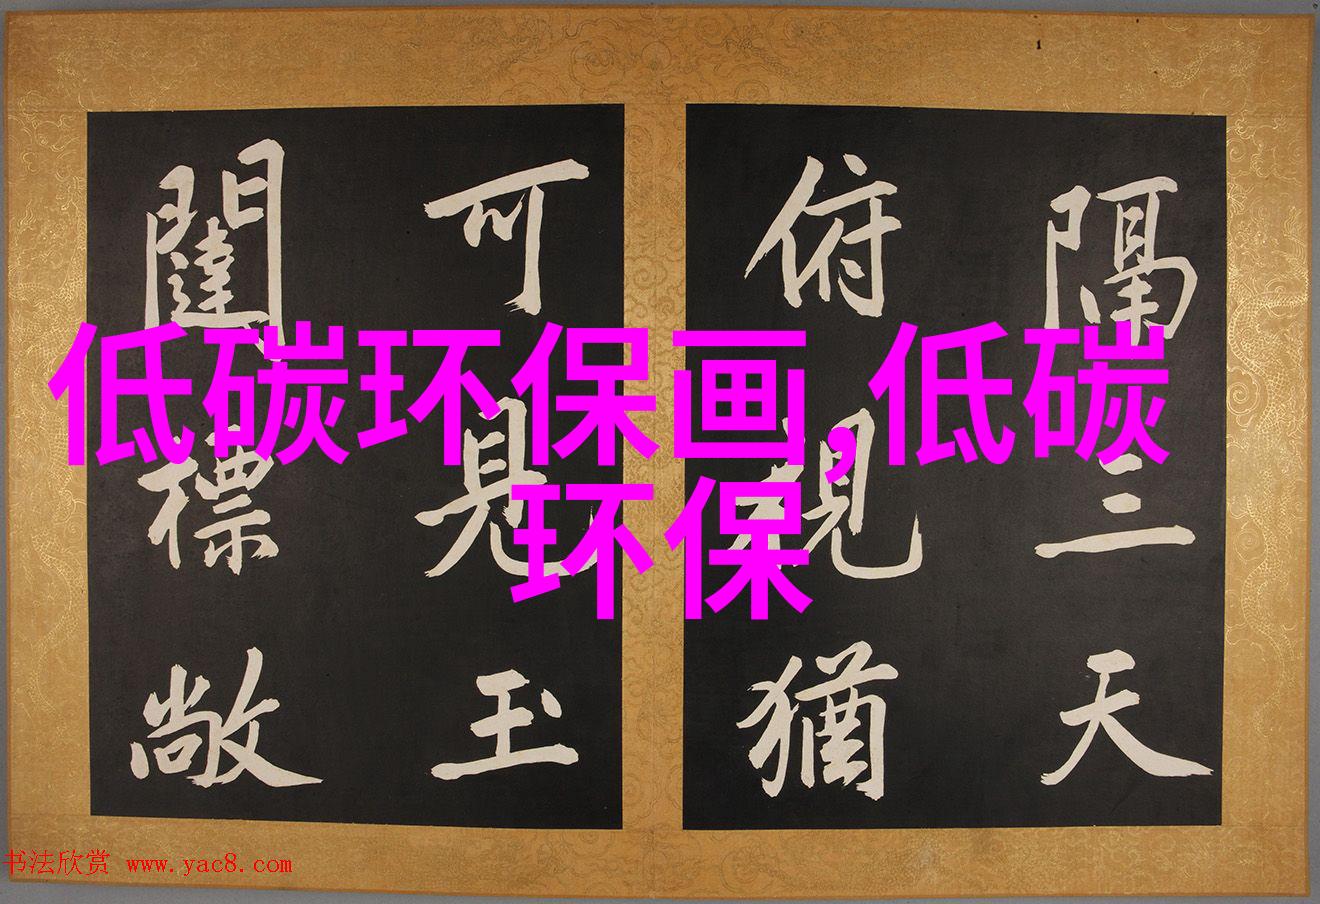 隔三天
俯視猶
可見玉
闥標敞
低碳环保画,低碳
环保
书法欣赏 www.yac8.com